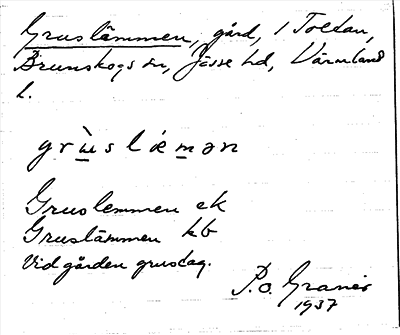 Gruslämmen, gård, i Toltan,
Brunskogs sn, Jösse hd, Värmland
l.
grùslæmən
Gruslemmen ek
Gruslämmen kb
Vid gården grustag.
P.O. Granér
1937